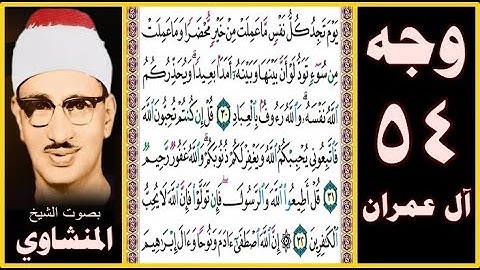 وجه
٥٤
آل عمران
يَوْمَ تَجِدُ كُلُّ نَفْسٍ مَّا عَمِلَتْ مِنْ خَيْرٍ مُّحْضَرًا وَمَا عَمِلَتْ
مِن سُوٓءٍ تَوَدُّ لَوْ أَنَّ بَيْنَهَا وَبَيْنَهُۥٓ أَمَدًۢا بَعِيدًا ۗ وَيُحَذِّرُكُمُ
ٱللَّهُ نَفْسَهُۥ ۗ وَٱللَّهُ رَءُوفٌۢ بِٱلْعِبَادِ ٣٠ قُلْ إِن كُنتُمْ تُحِبُّونَ ٱللَّهَ
فَٱتَّبِعُونِى يُحْبِبْكُمُ ٱللَّهُ وَيَغْفِرْ لَكُمْ ذُنُوبَكُمْ ۗ وَٱللَّهُ غَفُورٌ رَّحِيمٌ
٣١ قُلْ أَطِيعُوا۟ ٱللَّهَ وَٱلرَّسُولَ ۖ فَإِن تَوَلَّوْا۟ فَإِنَّ ٱللَّهَ لَا يُحِبُّ
ٱلْكَٰفِرِينَ ٣٢ ۞ إِنَّ ٱللَّهَ ٱصْطَفَىٰٓ ءَادَمَ وَنُوحًا وَءَالَ إِبْرَٰهِيمَ
بصوت الشيخ
المنشاوي